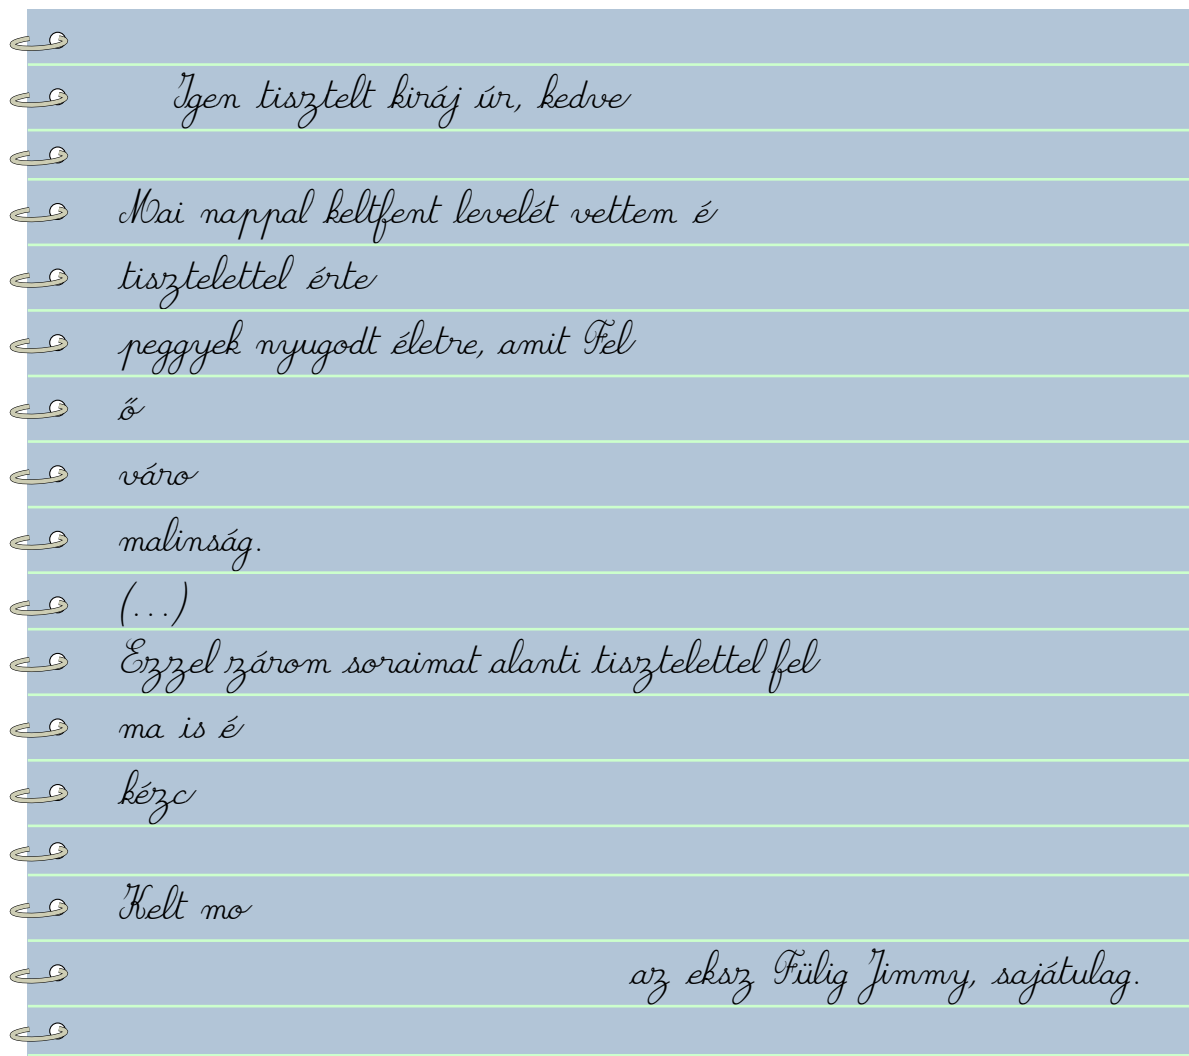 Igen tisztelt királj úr, kedve
Mai nappal keltfent levelét vettem é
tisztelettel érte
peggyek nyugodt életre, amit Fel
ő
váro
malinság.
(...)
Ezzel zárom soraimat alanti tisztelettel fel
ma is é
kézc
Kelt mo
az eksz Fülig Jimmy, sajátulag.